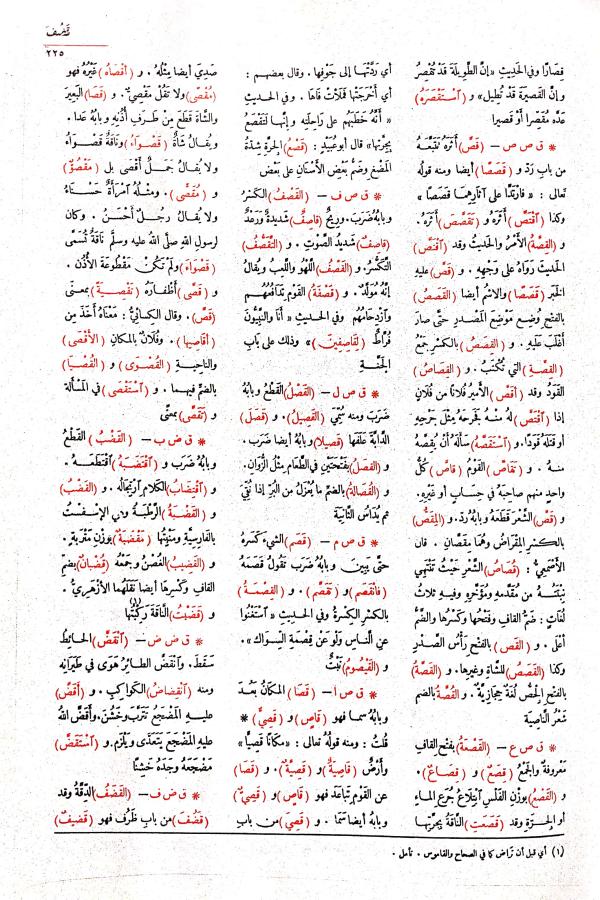 قضف
٢٢٥
قِصَارًا وفي الحَدِيثِ «إنَّ الطَّوِيلَةَ قَدْ تُقْصِرُ
وإنَّ القَصِيرَةَ قَدْ تُطِيل» و (اسْتَقْصَرَهُ)
عَدَّهُ مُقَصِّرًا أو قَصِيرا
* ق ص ص — (قَصَّ) أَثَرَهُ تَتَبَّعَهُ
من بابِ رَدَّ و (قَصَصًا) أيضا ومنه قولُه
تعالى : «فَارْتَدَّا على آثَارِهِمَا قَصَصًا»
وكذا (اقْتَصَّ) أَثَرَهُ و (تَقَصَّصَ) أَثَرَهُ .
و (القِصَّةُ) الأَمْرُ والحَدِيثُ وقد (اقْتَصَّ)
الحَدِيثَ رَوَاهُ على وَجْهِهِ . و (قَصَّ) عليه
الخَبَرَ (قَصَصًا) والاسْمُ أيضا (القَصَصُ)
بالفتح وُضِعَ مَوْضِعَ المَصْدَرِ حتَّى صارَ
أَغْلَبَ عليه . و (القِصَصُ) بالكَسْرِ جَمْعُ
(القِصَّةِ) التي تُكْتَبُ . و (القِصَاصُ)
القَوَدُ وقد (أَقَصَّ) الأَمِيرُ فُلَانًا من فُلَانٍ
إذا (اقْتَصَّ) لَهُ مِنْهُ بَجَرَحَهُ مِثْلَ جَرْحِهِ
أو قَتَلَهُ قَوَدًا . و (اسْتَقَصَّهُ) سَأَلَهُ أنْ يُقِصَّهُ
منه . و (تَقَاصَّ) القَوْمُ (قَاصَّ) كُلُّ
واحِدٍ منهم صاحِبَهُ في حِسَابٍ أو غَيْرِهِ.
و (قَصَّ) الشَّعْرَ قَطَعَهُ وبابُهُ رَدَّ . و (المِقَصُّ)
بالكسْرِ المِقْرَاضُ وهُمَا مِقَصَّانِ . قال
الأَصْمَعِيُّ : (قُصَاصُ) الشَّعْرِ حَيْثُ تَنْتَهِي
نَبْتَتُهُ من مُقَدَّمِهِ ومُؤَخَّرِهِ وفيه ثلاثُ
لُغَاتٍ : ضَمُّ القافِ وفَتْحُها وكَسْرُها والضَّمُّ
أَعْلَى . و (القَصُّ) بالفتح رَأْسُ الصَّدْرِ
وكذا (القَصَصُ) للشَّاةِ وغيرِها . و (القَصَّةُ)
بالفتح الجِصُّ لُغَةٌ حِجَازِيَّةٌ . و (القُصَّةُ) بالضم
شَعْرُ النَّاصِيَةِ
* ق ص ع — (القَصْعَةُ) بفتح القافِ
مَعْرُوفَةٌ والجَمْعُ (قِصَعٌ) و (قِصَاعٌ) .
و (القَصْعُ) بوَزْنِ الفَلْسِ ابْتِلَاعُ جُرَعِ المَاءِ
أو الجِرَّةِ وقد (قَصَعَتِ) النَّاقَةُ بِجِرَّتِها
أي رَدَّتْهَا إلى جَوْفِها . وقال بعضهم :
أي أَخْرَجَتْهَا فَمَلَأَتْ فَاهَا . وفي الحديثِ
«أَنَّهُ خَطَبَهُم على رَاحِلَتِهِ وإنَّها لَتَقْصَعُ
بِجِرَّتِهَا» قال أبو عُبَيْدٍ : (قَصْعُ) الجِرَّةِ شِدَّةُ
المَضْغِ وضَمُّ بَعْضِ الأَسْنَانِ على بَعْضٍ
* ق ص ف — (القَصْفُ) الكَسْرُ
وبابُهُ ضَرَبَ . ورِيحٌ (قَاصِفٌ) شَدِيدَةٌ ورَعْدٌ
(قَاصِفٌ) شَدِيدُ الصَّوْتِ . و (التَّقَصُّفُ)
التَّكَسُّرُ . و (القَصْفُ) اللَّهْوُ واللَّعِبُ ويُقالُ
إنَّه مُوَلَّدٌ . و (قَصْفَةُ) القَوْمِ تَدَافُعُهُم
وازْدِحَامُهُم وفي الحَدِيثِ «أَنَا والنَّبِيُّونَ
فُرَّاطٌ (لِقَاصِفِينَ)» وذلك على بابِ
الجَنَّةِ
* ق ص ل — (القَصْلُ) القَطْعُ وبابُهُ
ضَرَبَ ومنه سُمِّيَ (القَصِيلُ) . و (قَصَلَ)
الدَّابَّةَ عَلَفَهَا (قَصِيلًا) وبابُهُ أيضا ضَرَبَ .
و (القَصَلُ) بفَتْحَتَيْنِ في الطَّعَامِ مِثْلُ الزُّوَانِ .
و (القُصَالَةُ) بالضمِّ ما يُعْزَلُ من البُرِّ إذا نُقِّيَ
ثم يُدَاسُ الثَّانِيَةَ
* ق ص م — (قَصَمَ) الشيءَ كَسَرَهُ
حتَّى يَبِينَ وبابُهُ ضَرَبَ تَقُولُ قَصَمَهُ
(فَانْقَصَمَ) و (تَقَصَّمَ) . و (القِصْمَةُ)
بالكَسْرِ الكِسْرَةُ وفي الحديثِ «اسْتَغْنُوا
عن النَّاسِ ولَوْ عَنْ قِصْمَةِ السِّوَاك» .
و (القَيْصُومُ) نَبْتٌ
* ق ص ا — (قَصَا) المَكَانُ بَعُدَ
وبابُهُ سما فهو (قَاصٍ) و (قَصِيٌّ) *
قُلْتُ : ومنه قولُهُ تعالى : «مَكَانًا قَصِيًّا»
وأَرْضٌ (قَاصِيَةٌ) و (قَصِيَّةٌ) . و (قَصَا)
عن القَوْمِ تَبَاعَدَ فهو (قَاصٍ) و (قَصِيٌّ)
وبابُهُ أيضا سَمَا . و (قَصِيَ) من بابِ
صَدِيَ أيضا مِثْلُهُ . و (أَقْصَاهُ) غَيْرُهُ فهو
(مُقْصًى) ولا تَقُلْ مَقْصِيٌّ . و (قَصَا) البَعِيرَ
والشَّاةَ قَطَعَ مِنْ طَرَفِ أُذُنِهِ وبابُهُ عَدا .
ويُقالُ شَاةٌ (قَصْوَاءُ) ونَاقَةٌ قَصْوَاءُ
ولا يُقالُ جَمَلٌ أَقْصَى بل (مَقْصُوٌّ)
و (مُقَصًّى) . ومِثْلُهُ امْرَأَةٌ حَسْنَاءُ
ولا يُقالُ رَجُلٌ أَحْسَنُ . وكان
لرسولِ اللهِ صلَّى اللهُ عليه وسلَّم نَاقَةٌ تُسَمَّى
(قَصْوَاءَ) ولم تَكُنْ مَقْطُوعَةَ الأُذُنِ .
و (قَصَّى) أَظْفَارَهُ (تَقْصِيَةً) بمعنى
(قَصَّ) . وقال الكِسَائِيُّ : مَعْنَاهُ أَخَذَ مِن
(أَقَاصِيهَا) . وفُلَانٌ بالمكانِ (الأَقْصَى)
والناحِيةِ (القُصْوَى) و (القُصْيَا)
بالضمِّ فيهما . و (اسْتَقْصَى) في المَسْأَلَةِ
و (تَقَصَّى) بمعنًى
* ق ض ب — (القَضْبُ) القَطْعُ
وبابُهُ ضَرَبَ و (اقْتَضَبَهُ) اقْتَطَعَهُ .
و (اقْتِضَابُ) الكلامِ ارْتِجَالُهُ . و (القَضْبُ)
و (القَضْبَةُ) الرَّطْبَةُ وهي الإسْفِسْتُ
بالفارِسِيَّةِ ومَنْبِتُها (مَقْضَبَةٌ) بوزْنِ مَتْرَبَةٍ .
و (القَضِيبُ) الغُصْنُ وجمعُهُ (قُضْبَانٌ) بضمِّ
القافِ وكَسْرِها أيضا نَقَلَهُما الأزْهَرِيُّ .
و (قَضَبْتُ) النَّاقَةَ رَكِبْتُها (١)
* ق ض ض — (انْقَضَّ) الحائِطُ
سَقَطَ . وانْقَضَّ الطائِرُ هَوَى في طَيَرَانِهِ
ومنه (انْقِضَاضُ) الكَواكِبِ . و (أَقَضَّ)
عليه المَضْجَعُ تَتَرَّبَ وخَشُنَ . وأَقَضَّ اللهُ
عليه المَضْجَعَ يَتَعَدَّى ويَلْزَمُ . و (اسْتَقَضَّ)
مَضْجَعَهُ وَجَدَهُ خَشِنًا
* ق ض ف — (القَضَفُ) الدِّقَّةُ وقد
(قَضُفَ) من بابِ ظَرُفَ فهو (قَضِيفٌ)
(١) أي قبل أن تُراض كما في الصحاح والقاموس . تأمل .